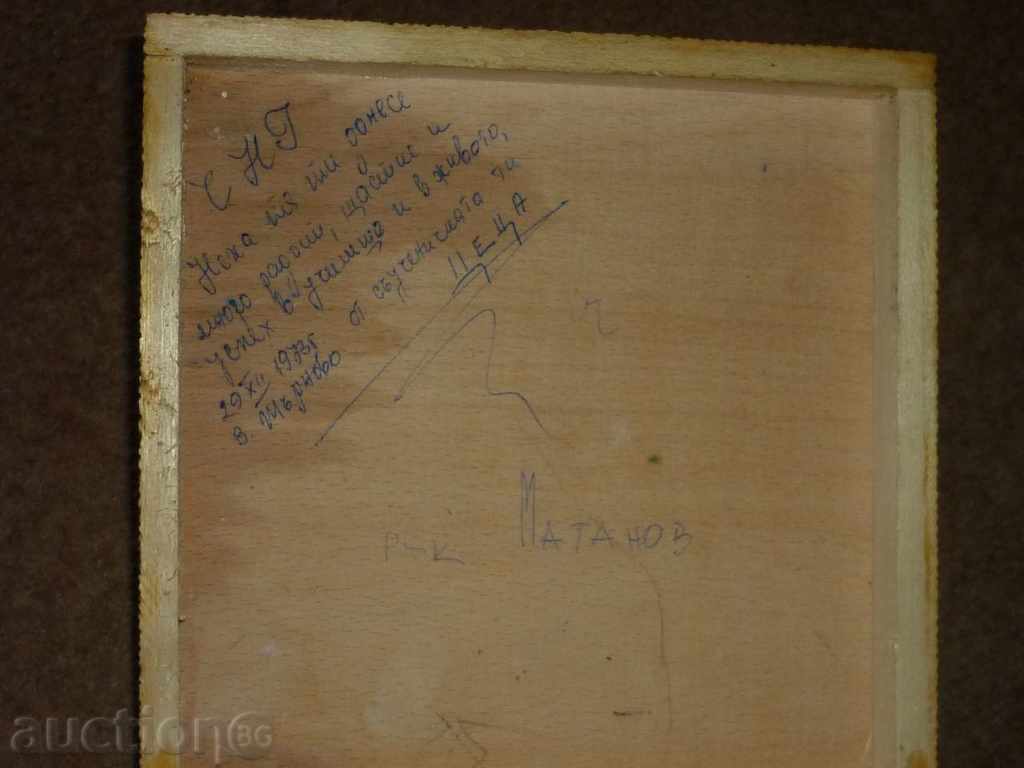 Ч Н Г
Нека тя ти донесе
много радост, щастие и
успех в училище и в живота,
от съученичката ти
ПЕЦА
29 XII 1973г
В. Търново
Р-К МАТАНОВ
auction BG